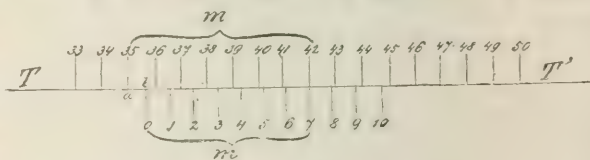 m
33 34 35 36 37 38 39 40 41 42 43 44 45 46 47 48 49 50
T T'
a
0 1 2 3 4 5 6 7 8 9 10
m